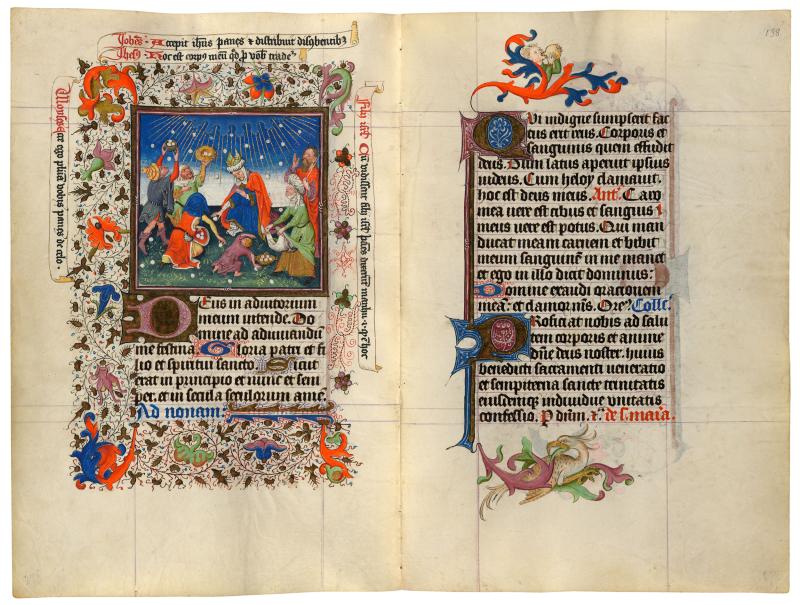 Johēs · Accepit ihūs panes & distribuit discūbentibꝫ
Ihesꝰ · Hoc est corpꝰ meū qd̄ p vob̄ tradeᵗ
Moyses · ego pluā vobis panes de celo ·
filij isrl̄ Cū vidissent filij isrl̄
Deus in adiutorium
meum intende. Do
mine ad adiuuandū
me festina. Gloria patri et fi
lio et spiritui sancto. Sicut
erat in principio et nunc et sem
per. et in secula seculorum ame.
Ad nonam.
138
Qui indigne sumpserit fac
tus erit reus. Corporis et
sanguinis quem effudit
deus. Dum latus aperuit ipsius
iudeus. Cum heloy clamauit.
hoc est deus meus. Ant. Caro
mea uere est cibus et sanguis
meus uere est potus. Qui man
ducat meam carnem et bibit
meum sanguinem in me manet
et ego in illo dicit dominus:
Domine exaudi orationem
meā. et clamor ms̄. Orem̄ꝰ Coll̄c.
Proficiat nobis ad salu
tem corporis et anime
dn̄e deus noster. huius
benedicti sacramenti ueneratio
et sempiterna sancte trinitatis
eiusdemqꝫ indiuidue unitatis
confessio. P dnm̄. &c̄. de s. maria.